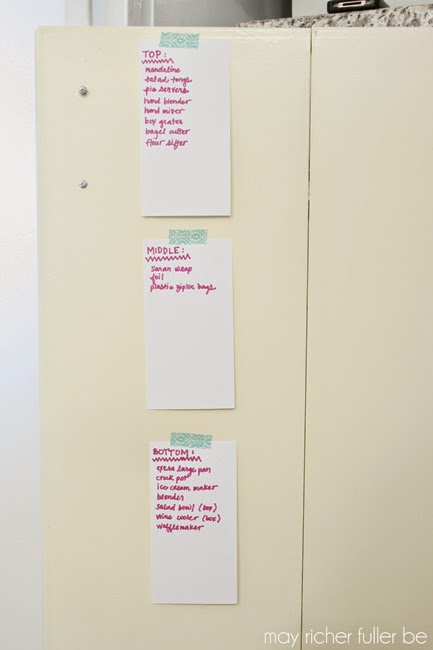 TOP:
mandoline
salad tongs
pie servers
hand blender
hand mixer
box grates
bagel cutter
flour sifter
MIDDLE:
saran wrap
foil
plastic ziploc bags
BOTTOM:
extra large pan
crock pot
ice cream maker
blender
salad bowl (box)
wine cooler (box)
wafflemaker
may richer fuller be